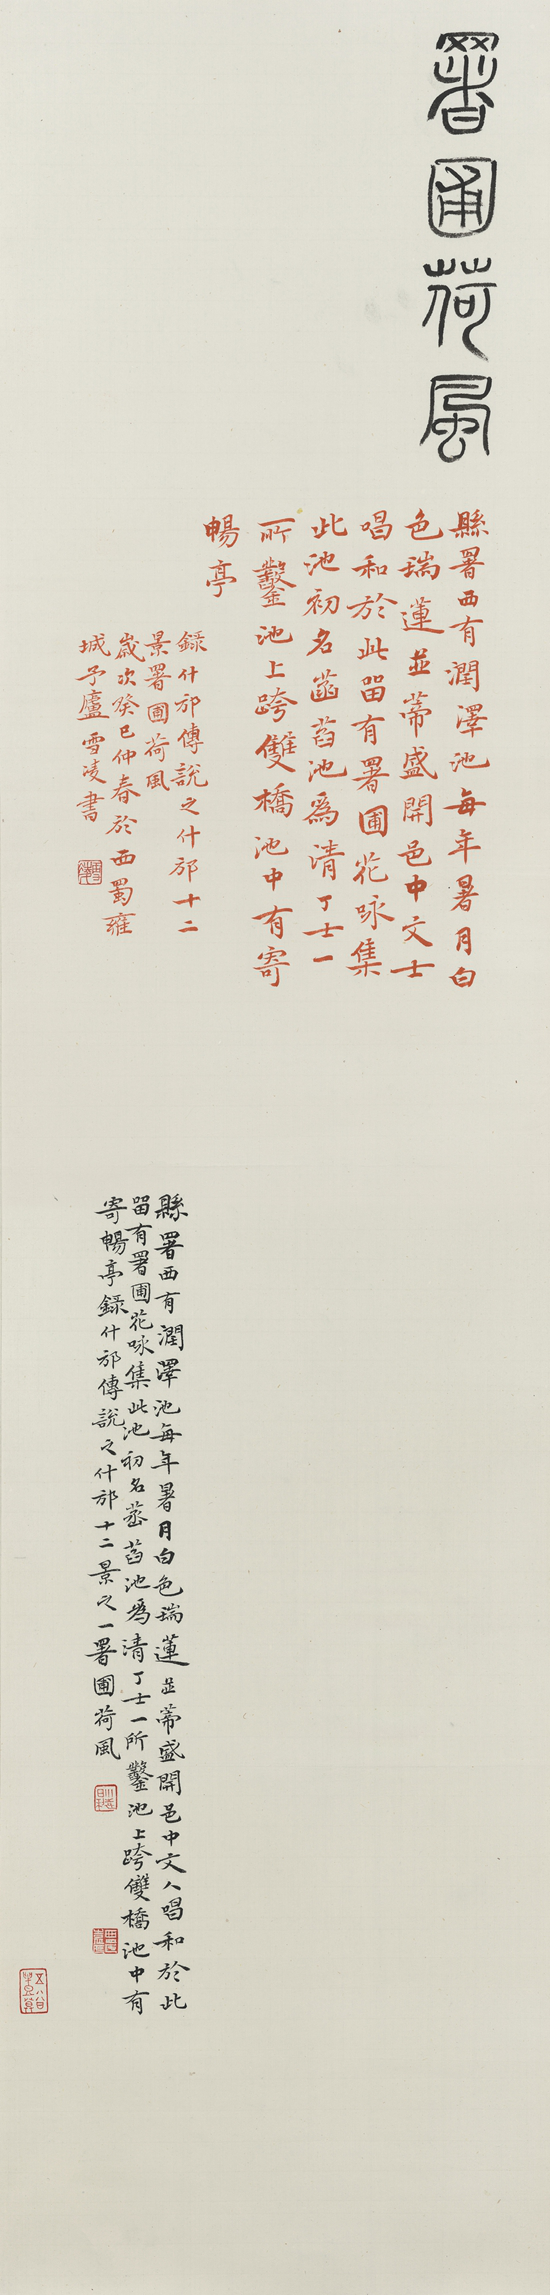 署圃荷風
縣署西有潤澤池每年暑月白
色瑞蓮並蒂盛開邑中文士
唱和於此留有署圃花咏集
此池初名菡萏池爲清丁士一
所鑿池上跨雙橋池中有寄
暢亭
録什邡傳說之什邡十二
景署圃荷風
歲次癸巳仲春於西蜀雍
城予廬雪凌書
縣署西有潤澤池每年暑月白色瑞蓮並蒂盛開邑中文人唱和於此
留有署圃花咏集此池初名菡萏池爲清丁士一所鑿池上跨雙橋池中有
寄暢亭録什邡傳說之什邡十二景之一署圃荷風